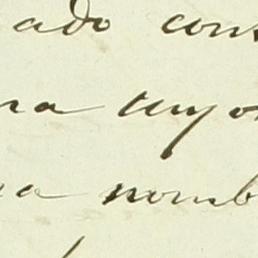 ado cons
ra cuyo
a nomb